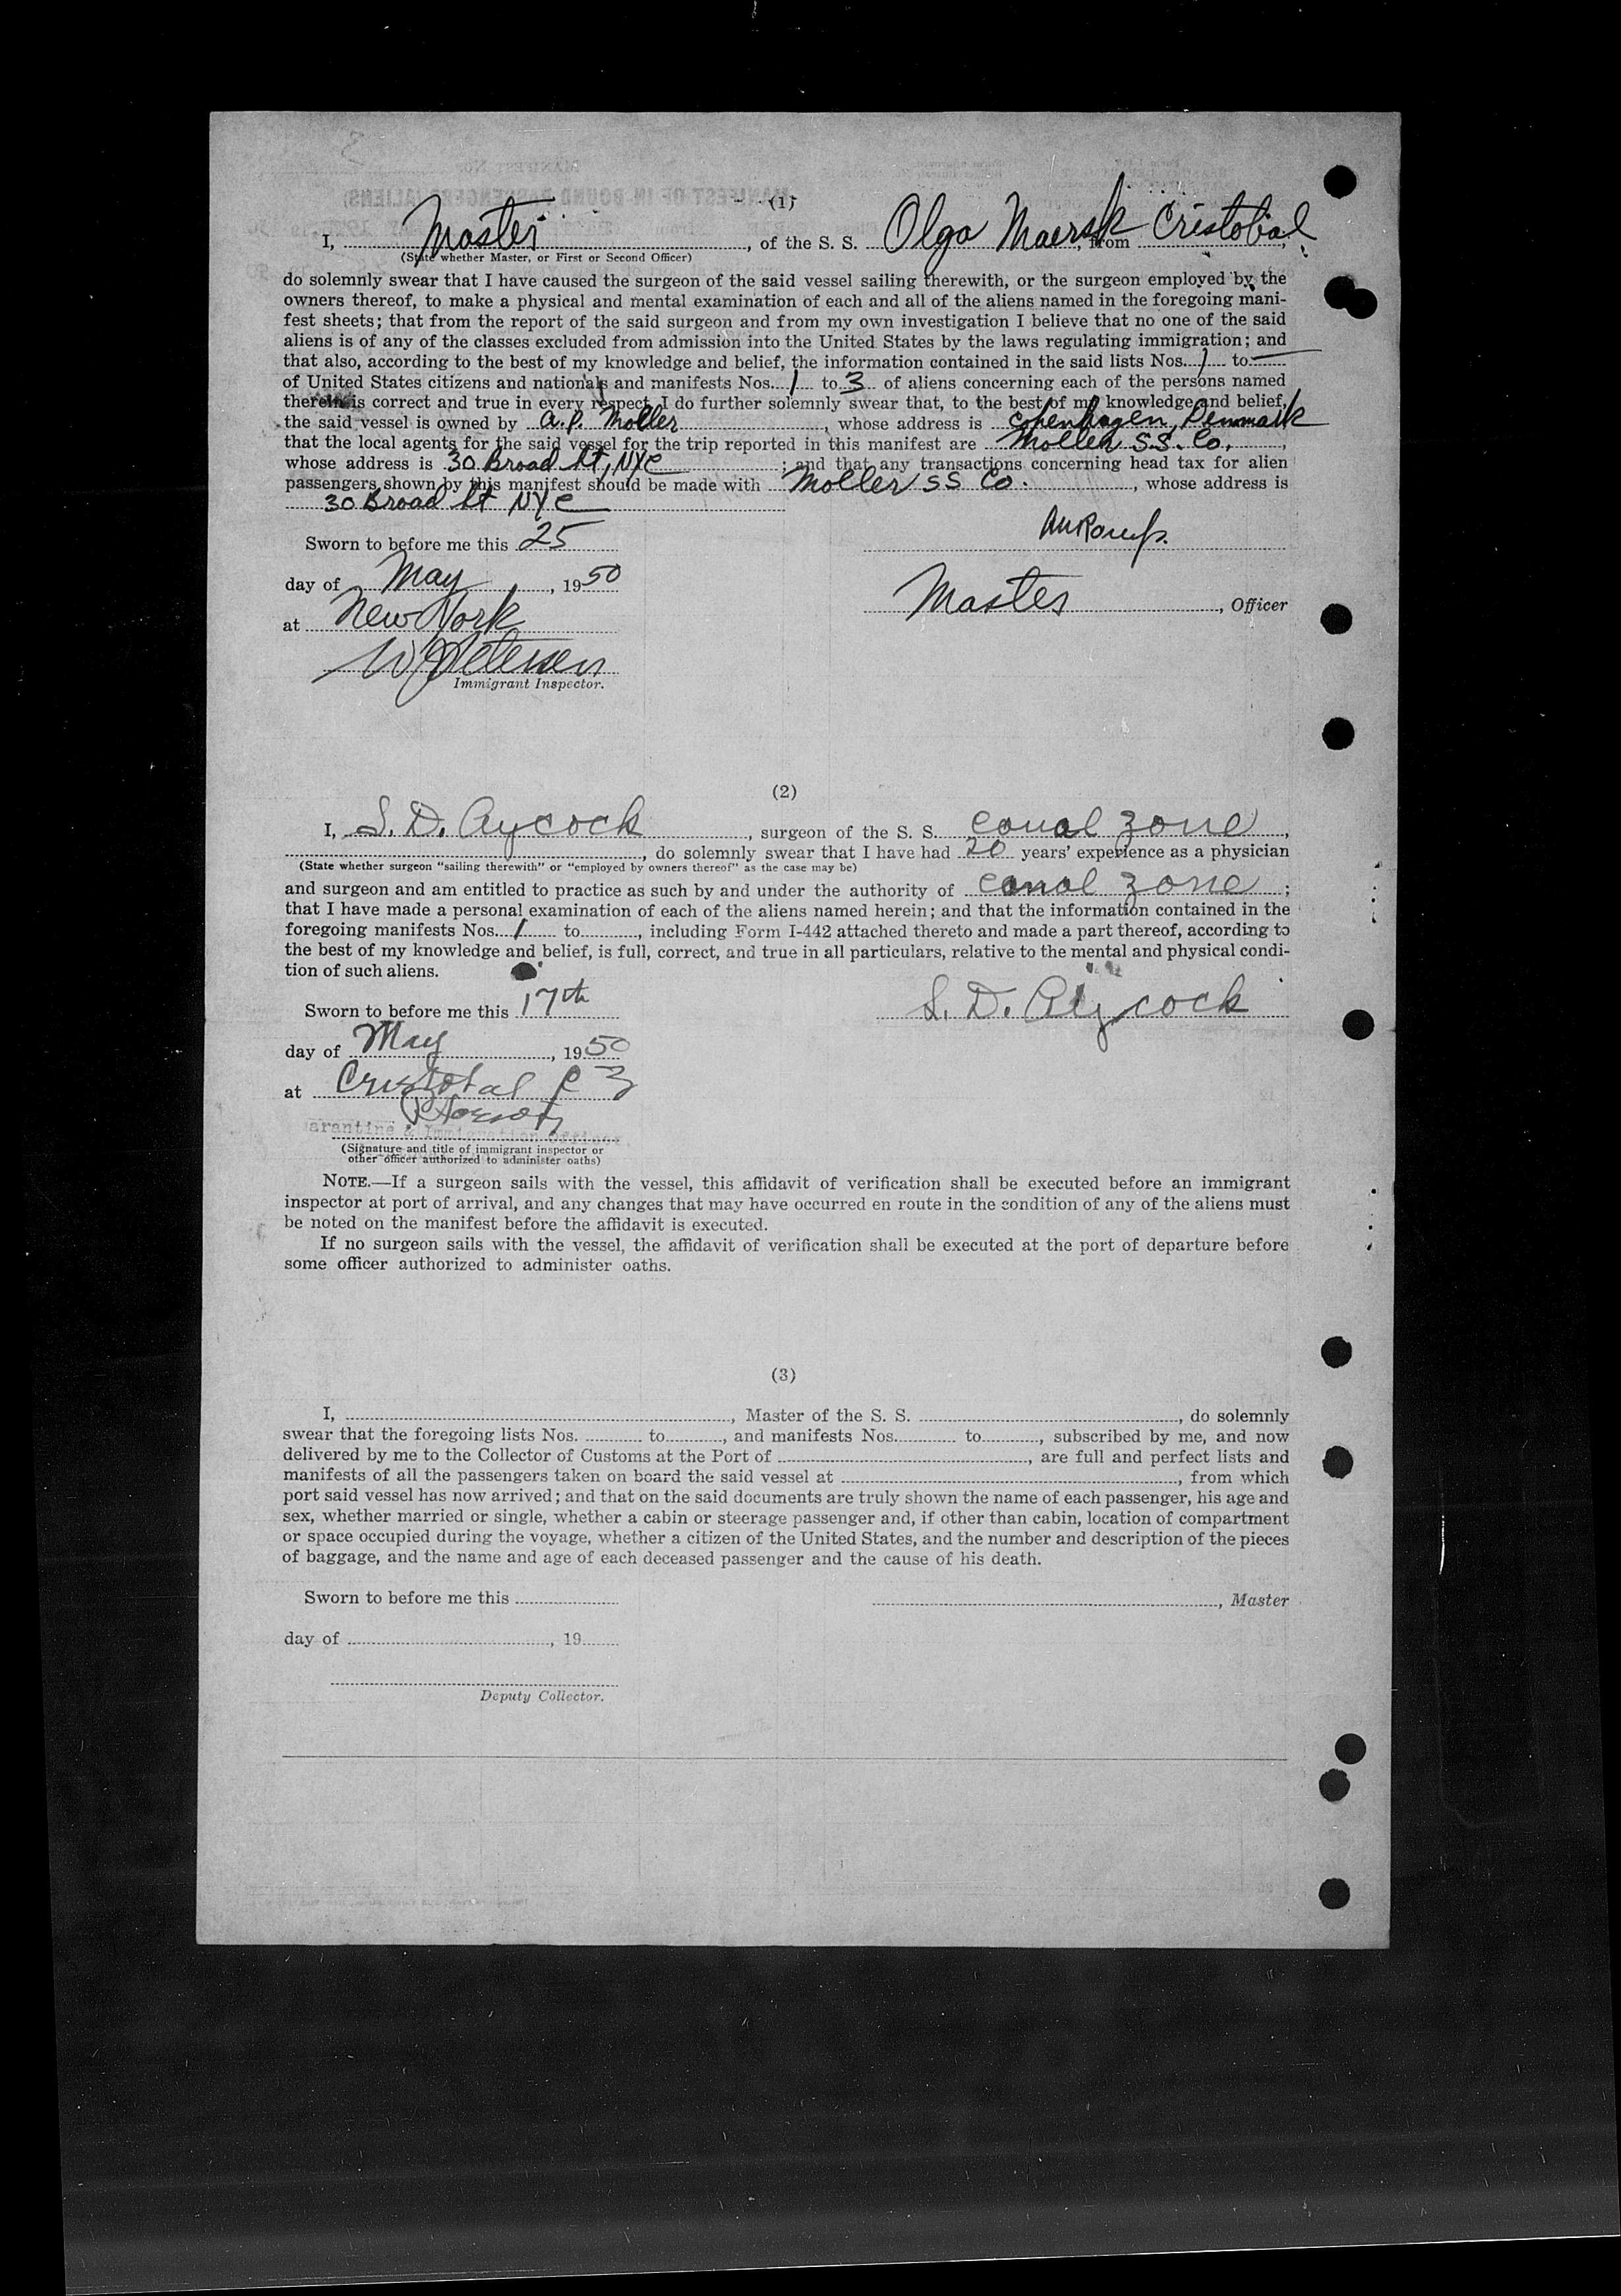 (1)
I, Master, of the S. S. Olga Maersk, from Cristobal,
(State whether Master, or First or Second Officer)
do solemnly swear that I have caused the surgeon of the said vessel sailing therewith, or the surgeon employed by the
owners thereof, to make a physical and mental examination of each and all of the aliens named in the foregoing mani-
fest sheets; that from the report of the said surgeon and from my own investigation I believe that no one of the said
aliens is of any of the classes excluded from admission into the United States by the laws regulating immigration; and
that also, according to the best of my knowledge and belief, the information contained in the said lists Nos. 1 to —
of United States citizens and nationals and manifests Nos. 1 to 3 of aliens concerning each of the persons named
therein is correct and true in every respect. I do further solemnly swear that, to the best of my knowledge and belief,
the said vessel is owned by A.P. Moller, whose address is Copenhagen, Denmark
that the local agents for the said vessel for the trip reported in this manifest are Moller S.S. Co.,
whose address is 30 Broad St, NYC; and that any transactions concerning head tax for alien
passengers shown by this manifest should be made with Moller SS Co., whose address is
30 Broad St NYC
Sworn to before me this 25
day of May, 1950
Master, Officer
at New York
W Petersen
Immigrant Inspector.
(2)
I, S. D. Aycock, surgeon of the S. S. Canal Zone,
, do solemnly swear that I have had 20 years' experience as a physician
(State whether surgeon "sailing therewith" or "employed by owners thereof" as the case may be)
and surgeon and am entitled to practice as such by and under the authority of Canal Zone;
that I have made a personal examination of each of the aliens named herein; and that the information contained in the
foregoing manifests Nos. 1 to , including Form I-442 attached thereto and made a part thereof, according to
the best of my knowledge and belief, is full, correct, and true in all particulars, relative to the mental and physical condi-
tion of such aliens.
Sworn to before me this 17th
S. D. Aycock
day of May, 1950
at Cristobal C Z
arantine & Immigration Officer
(Signature and title of immigrant inspector or
other officer authorized to administer oaths)
NOTE.—If a surgeon sails with the vessel, this affidavit of verification shall be executed before an immigrant
inspector at port of arrival, and any changes that may have occurred en route in the condition of any of the aliens must
be noted on the manifest before the affidavit is executed.
If no surgeon sails with the vessel, the affidavit of verification shall be executed at the port of departure before
some officer authorized to administer oaths.
(3)
I, , Master of the S. S. , do solemnly
swear that the foregoing lists Nos. to , and manifests Nos. to , subscribed by me, and now
delivered by me to the Collector of Customs at the Port of , are full and perfect lists and
manifests of all the passengers taken on board the said vessel at , from which
port said vessel has now arrived; and that on the said documents are truly shown the name of each passenger, his age and
sex, whether married or single, whether a cabin or steerage passenger and, if other than cabin, location of compartment
or space occupied during the voyage, whether a citizen of the United States, and the number and description of the pieces
of baggage, and the name and age of each deceased passenger and the cause of his death.
Sworn to before me this
, Master
day of , 19
Deputy Collector.